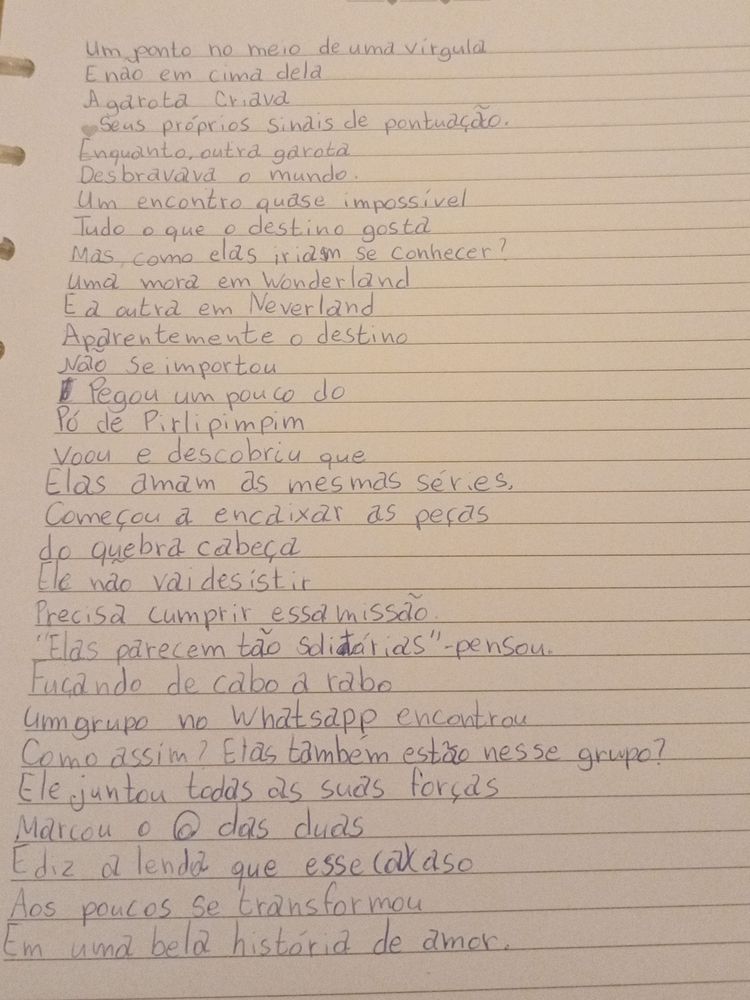 Um ponto no meio de uma vírgula
E não em cima dela
A garota criava
Seus próprios sinais de pontuação.
Enquanto, outra garota
Desbravava o mundo.
Um encontro quase impossível
Tudo o que o destino gosta
Mas, como elas iriam se conhecer?
Uma mora em Wonderland
E a outra em Neverland
Aparentemente o destino
Não se importou
Pegou um pouco do
Pó de Pirlipimpim
Voou e descobriu que
Elas amam as mesmas séries,
Começou a encaixar as peças
do quebra cabeça
Ele não vai desistir
Precisa cumprir essa missão.
"Elas parecem tão solitárias"-pensou.
Fuçando de cabo a rabo
Um grupo no Whatsapp encontrou
Como assim? Elas também estão nesse grupo?
Ele juntou todas as suas forças
Marcou o @ das duas
E diz a lenda que esse acaso
Aos poucos se transformou
Em uma bela história de amor.